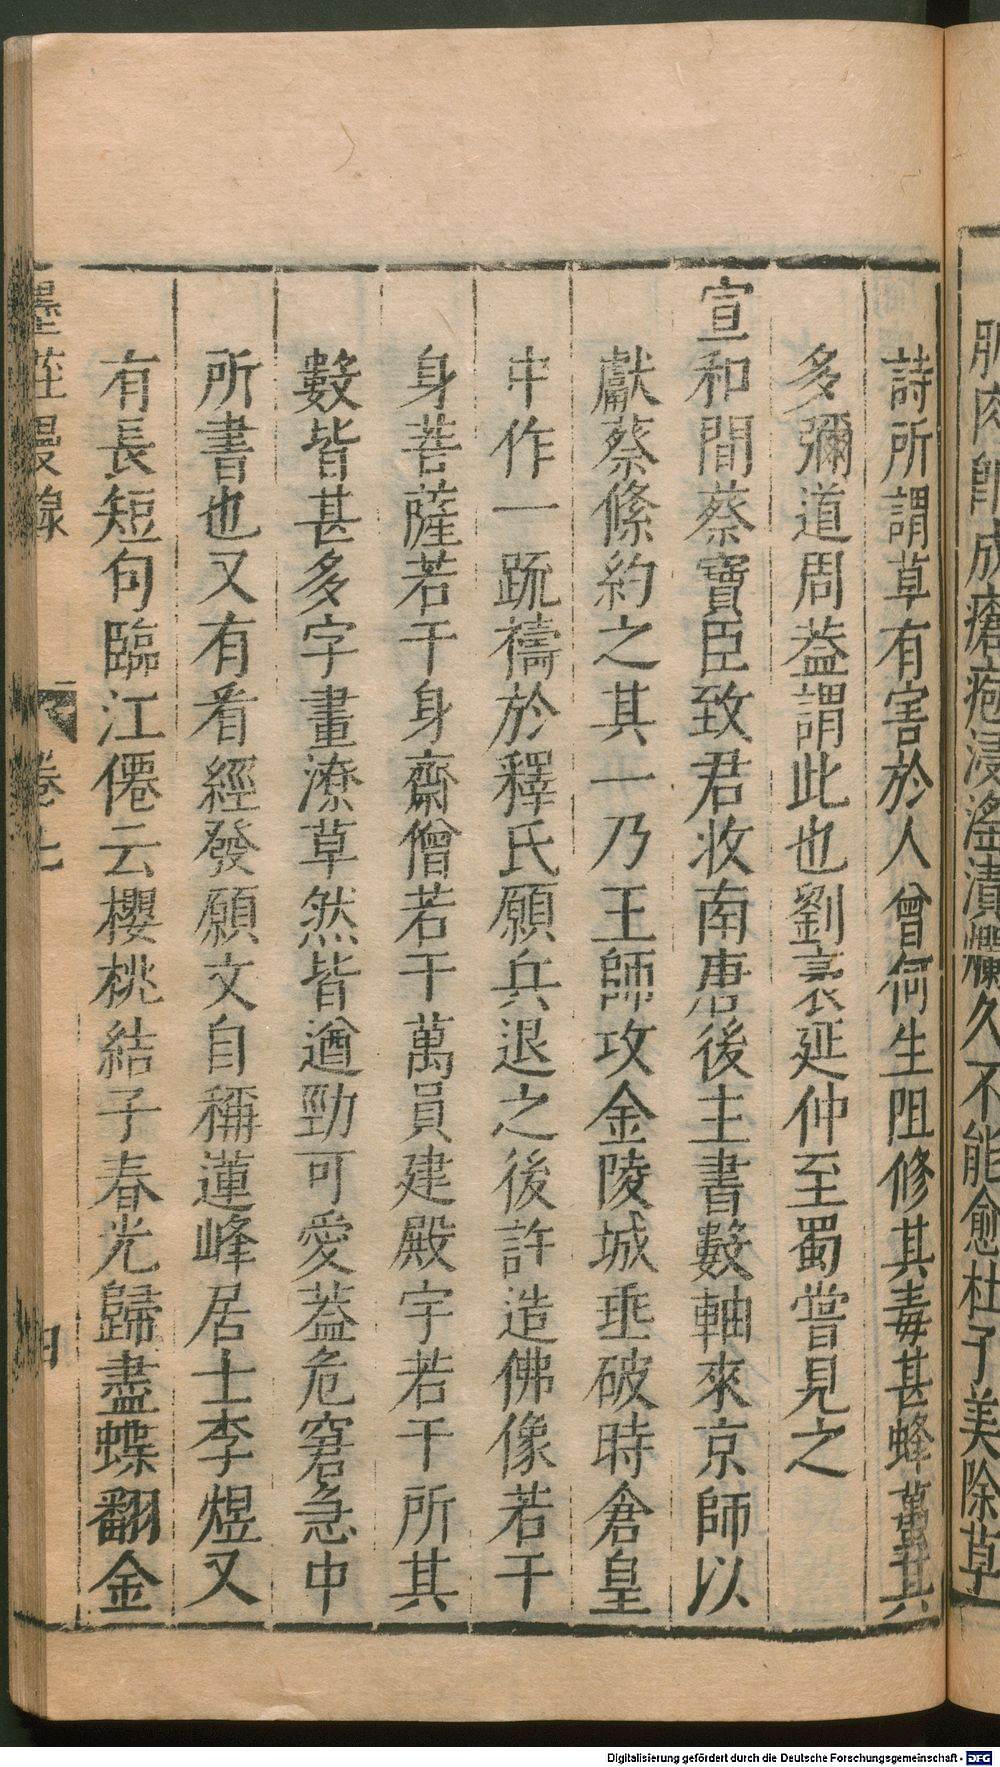 肌肉卽成瘡疱浸滛漬爛久不能愈杜子美除草
詩所謂草有害於人曾何生阻修其毒甚蜂蠆其
多彌道周葢謂此也劉袤延仲至蜀嘗見之
宣和間蔡寶臣致君收南唐後主書數軸來京師以
獻蔡絛約之其一乃王師攻金陵城垂破時倉皇
中作一疏禱於釋氏願兵退之後許造佛像若干
身菩薩若干身齋僧若干萬員建殿宇若干所其
數皆甚多字畫潦草然皆遒勁可愛葢危窘急中
所書也又有看經發願文自稱蓮峰居士李煜又
有長短句臨江僊云櫻桃結子春光歸盡蝶翻金
墨莊漫錄 卷七
Digitalisierung gefördert durch die Deutsche Forschungsgemeinschaft - DFG